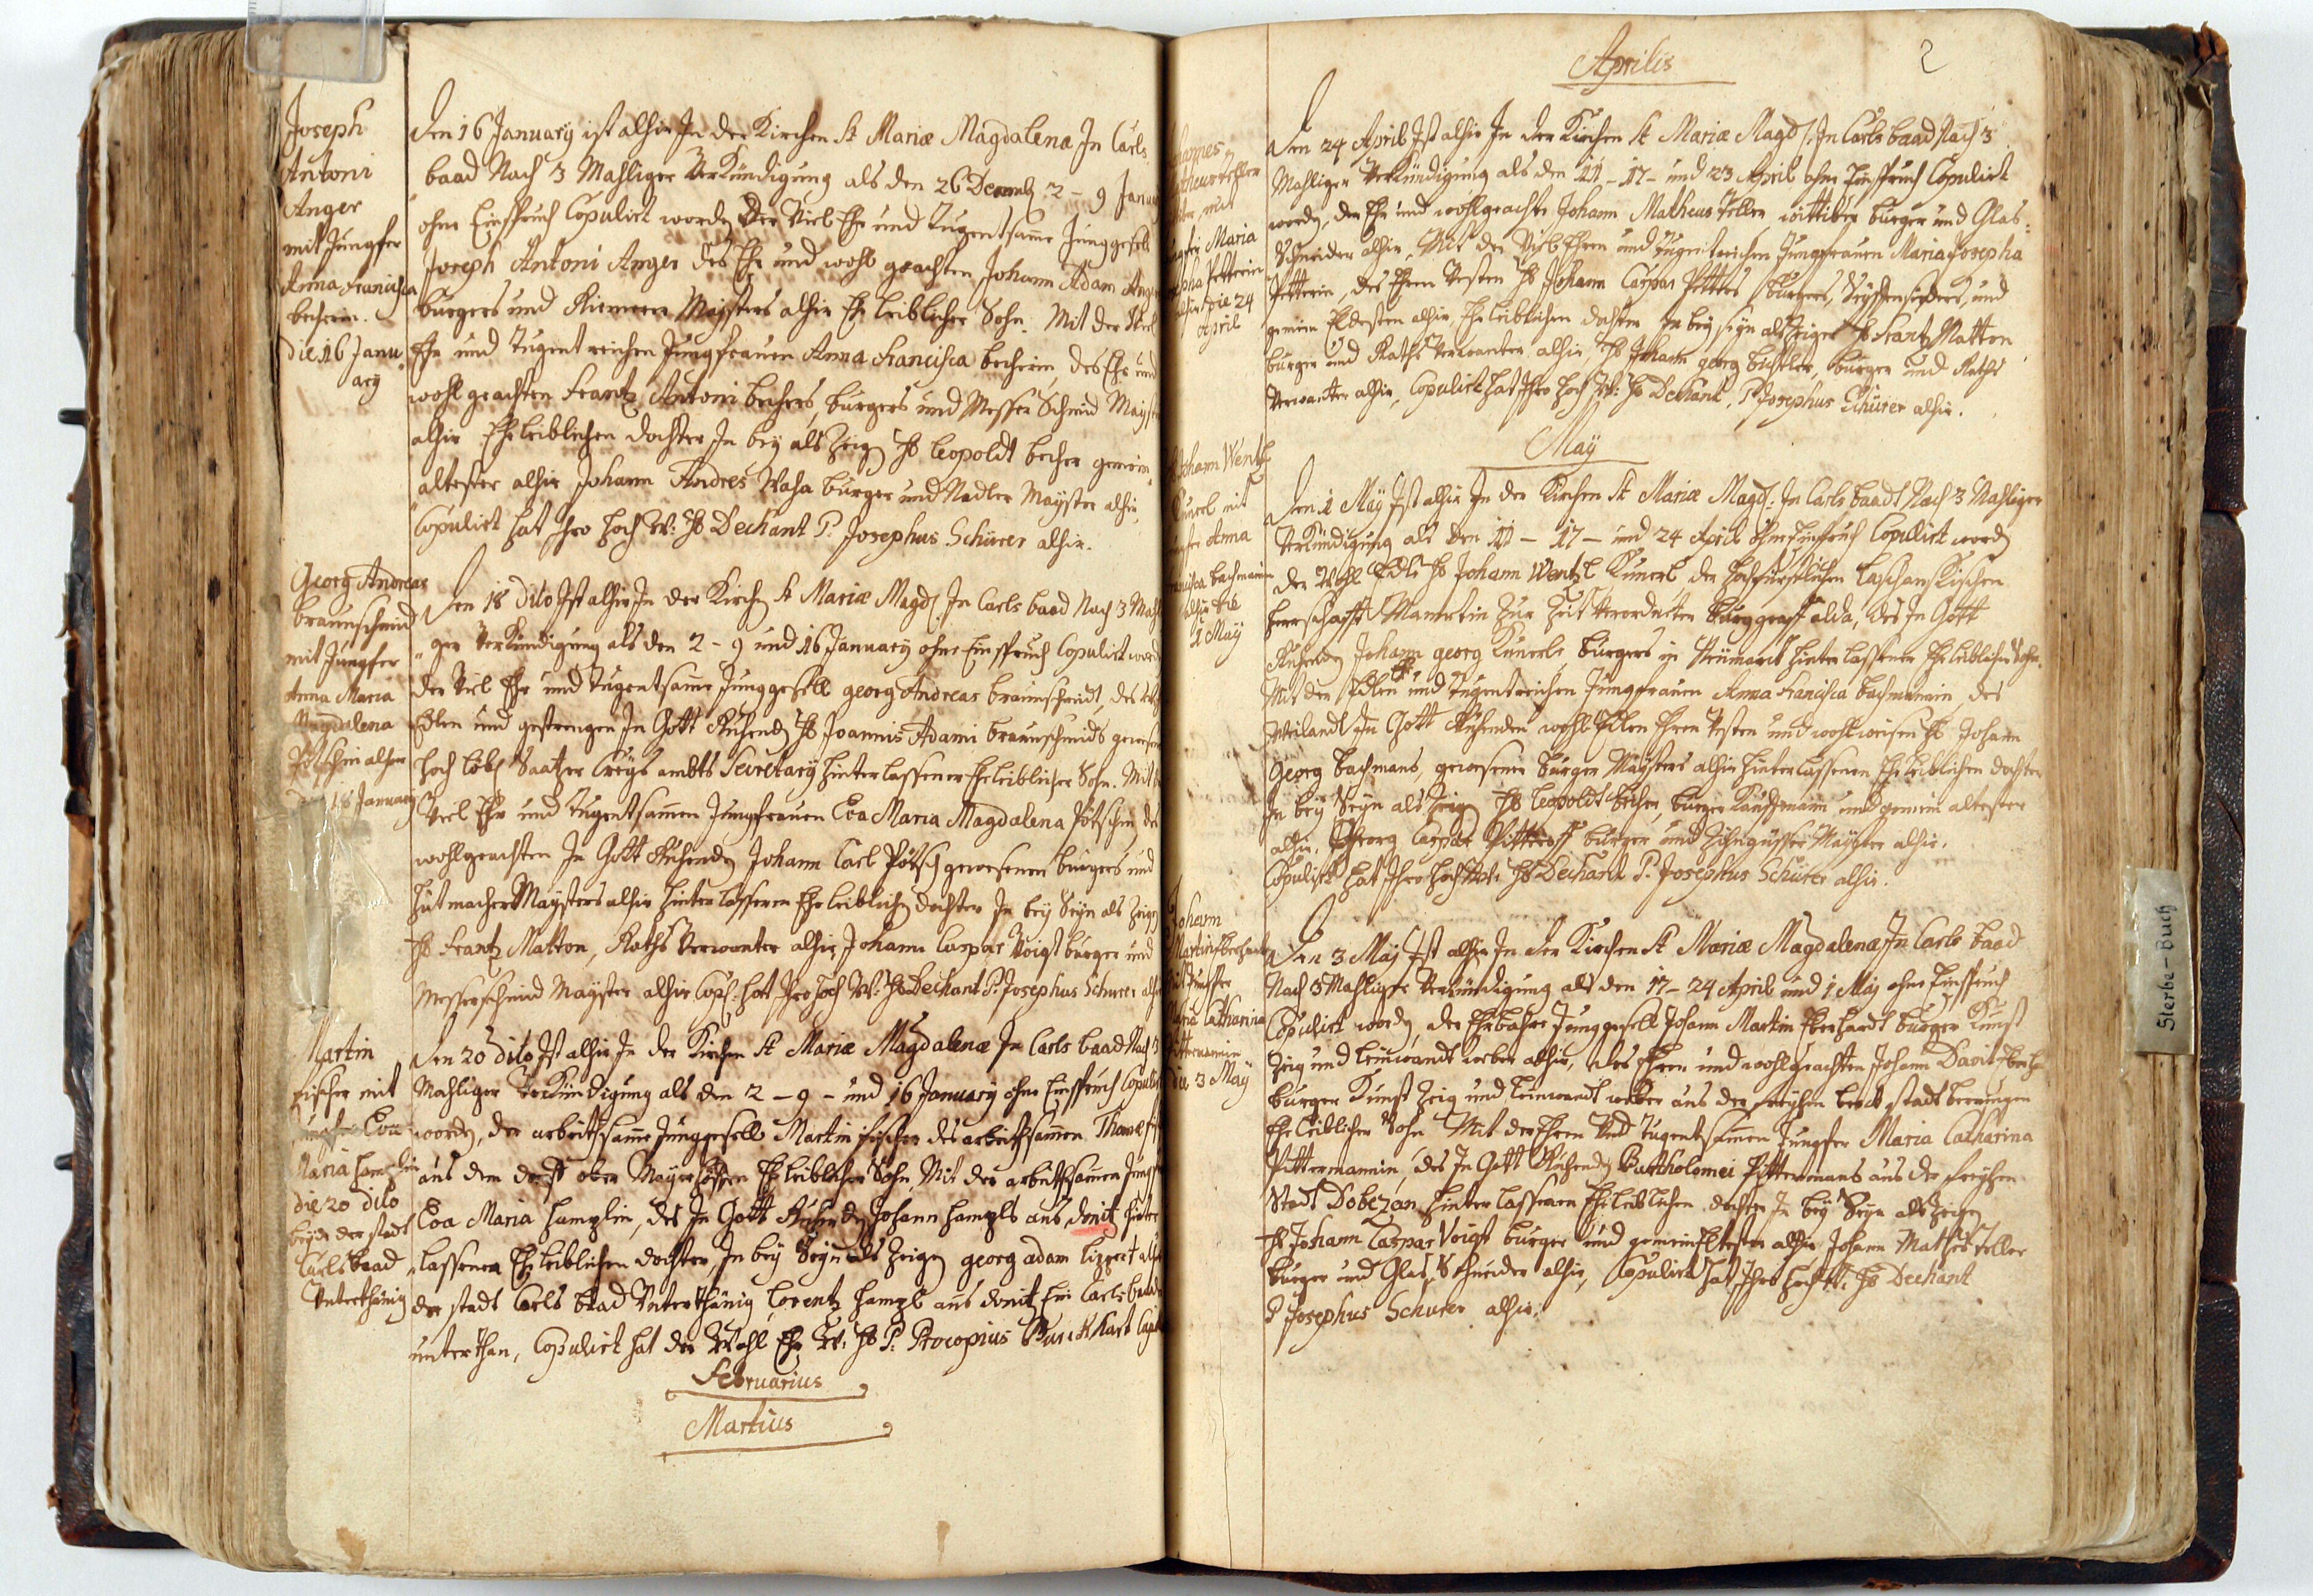 Joseph
Antoni
Anger
mit Jungfer
Anna Francisca
becherin.
die 16 Janu
ary
Den 16 January ist alhir In der Kirchen St Mariæ Magdalena In Carls
baad Nach 3 Mahliger Verkündigung als den 26 Decemb 2 - 9 Janua
ohne Einspruch Copulirt word der Viel Ehr und Tugentsame Junggesell
Joseph Antoni Anger des Ehr und wohl geachten Johann Adam Anger
burgers und Riemer Maysters alhir Ehe leiblicher Sohn. Mit der Viel
Ehr und Tugentreichen Jungfrauen Anna Francisca becherin, des Ehr und
wohl geachten Frantz Antoni bechers, burgers und Messer Schmid Mayster
alhir Eheleiblichen dochter In bey als Zeig H Leopoldt becher gemein
altester alhir Johann Andres Waha burger und Nadler Mayster alhir,
Copulirt hat Ihro Hoch W: H Dechant P. Josephus Schürer alhir.
Georg Andreas
braunschmid
mit Jungfer
Anna Maria
Magdalena
Pötschin alhir
18 January
Den 18 dito Ist alhir In der Kirch St Mariæ Magd: In Carls baad Nach 3 Mahl
ger Verkündigung als den 2 - 9 und 16 January ohne Einspruch Copulirt word
der Viel Ehr und Tugentsame Junggesell georg Andreas braunschmidt, des
Edlen und gestrengen In Gott Ruhend H Joannis Adami braunschmids gewesen
Hoch löbl Saatzer Creys ambts Secretary hinterlassener Eheleiblicher Sohn. Mit
Viel Ehr und Tugentsamen Jungfrauen Eva Maria Magdalena Pötschin des
wohlgeachten In Gott Ruhend Johann Carl Pötsch gewesenen burgers und
Hutmacher Maysters alhir hinterlassenen Eheleiblich dochter In bey Seyn als Zeig
H Frantz Matton, Raths Verwanter alhir, Johann Caspar Voigt burger und
Messerschmid Mayster alhir Cop: hat Ihro Hoch W: H Dechant P. Josephus Schürer alhir
Martin
fischer mit
Jungfer Eva
Maria hamplin
die 20 dito
beyde der stadt
Carlsbaad
Unterthänig
Den 20 dito Ist alhir In der Kirchen St Mariæ Magdalenæ In Carls baad Nach 3
Mahliger Verkündigung als den 2 - 9 - und 16 January ohne Einspruch Copulirt
word, der arbeitsame Junggesell Martin fischer des arbeitsamen Thomæ
aus dem dorff ober Mayerhöffen Eheleiblicher Sohn, Mit der arbeitsamen Jungf
Eva Maria hamplin, des In Gott Ruhend Johann hampls aus donitz hinter
lassenen Eheleiblichen dochter, In bey Seyn als Zeig georg adam lippert alhir
der stadt Carls baad Unterthänig, Lorentz hampl aus donitz Ein Carlsbaad
unterthan, Copulirt hat der Wohl Ehr W: H P. Procopius Burckhart Capl
Februarius
Martius
2
Aprilis
Maria
Petterin
die 24
April
Den 24 April Ist alhir In der Kirchen St Mariæ Magd: In Carls baad Nach 3
Mahliger Verkündigung als den 11 - 17 - und 23 April ohne Einspruch Copulirt
word, der Ehr und wohlgeachte Johann Matheus Feller, wittiber burger und Glas
Schneider alhir, Mit der Viel Ehren und tugentreichen Jungfrauen Maria Josepha
Petterin, des Ehren Vesten H Johann Caspar Petters burgers, Seyffensieders, und
gemein Eldesten alhir, Eheleiblichen dochter In bey seyn als Zeigen H Frantz Matton
burger und Raths Verwanter alhir, H Johann georg bichler, burger und Raths
Verwanter alhir, Copulirt hat Ihro Hoch W: H Dechant, P Josephus Schürer alhir.
May
Johann Wentzl
Kunerl mit
Jungfer Anna
Francisca bachmanin
alhir die
1 May
Den 1 May Ist alhir In der Kirchen St Mariæ Magd: In Carls baadt Nach 3 Mahliger
Verkündigung als den 11 - 17 - und 24 April ohne Einspruch Copulirt word
der Wohl Edle H Johann Wentzl Kunerl der Hochfürstlichen Laschanskischen
Herrschafft Manetin Zur Zeit Verordneter Burggraff alda, des In Gott
Ruhend Johann georg Kunerls burgers in Neumarck hinterlassener Eheleiblicher Sohn.
Mit der Edlen Ehr und Tugentreichen Jungfrauen Anna Francisca bachmanin, des
Weiland In Gott Ruhenden wohl Edlen Ehren Vesten und wohlweisen H Johann
Georg bachmans, gewesenen burger Maysters alhir hinterlassenen Eheleiblichen dochter
In bey Seyn als Zeig H Leopoldt becher, burger Kauffmann und gemein altester
alhir, Georg Caspar Pitteroff burger und Zihngüsser Mayster alhir.
Copulirt hat Ihro Hoch W: H Dechant P. Josephus Schürer alhir.
Johann
Martin Eberhardt
mit Jungfer
Maria Catharina
Pittermannin
die 3 May
Den 3 May Ist alhir In der Kirchen St Mariæ Magdalenæ In Carls baad
Nach 3 Mahliger Verkündigung als den 17 - 24 April und 1 May ohne Einspruch
Copulirt word, der Ehrbahre Junggesell Johann Martin Eberhardt burger Kunst
Zeig und leinwandt weber alhir, des Ehren und wohlgeachten Johann David Eberh
burger Kunst Zeig und leinwandt weber aus der freyhen berck stadt beeringen
Eheleiblicher Sohn Mit der Ehren Und Tugentsamen Jungfer Maria Catharina
Pittermannin, des In Gott Ruhend Bartholomei Pittermans aus der freyhen
Stadt Dobezan hinterlassenen Eheleiblichen dochter In bey Seyn als Zeigen
H Johann Caspar Voigt burger und gemein Eltester alhir Johann Mathes Feller
burger und Glas Schneider alhir, Copulirt hat Ihro Hoch W: H Dechant
P Josephus Schurer alhir.
Sterbe-Buch